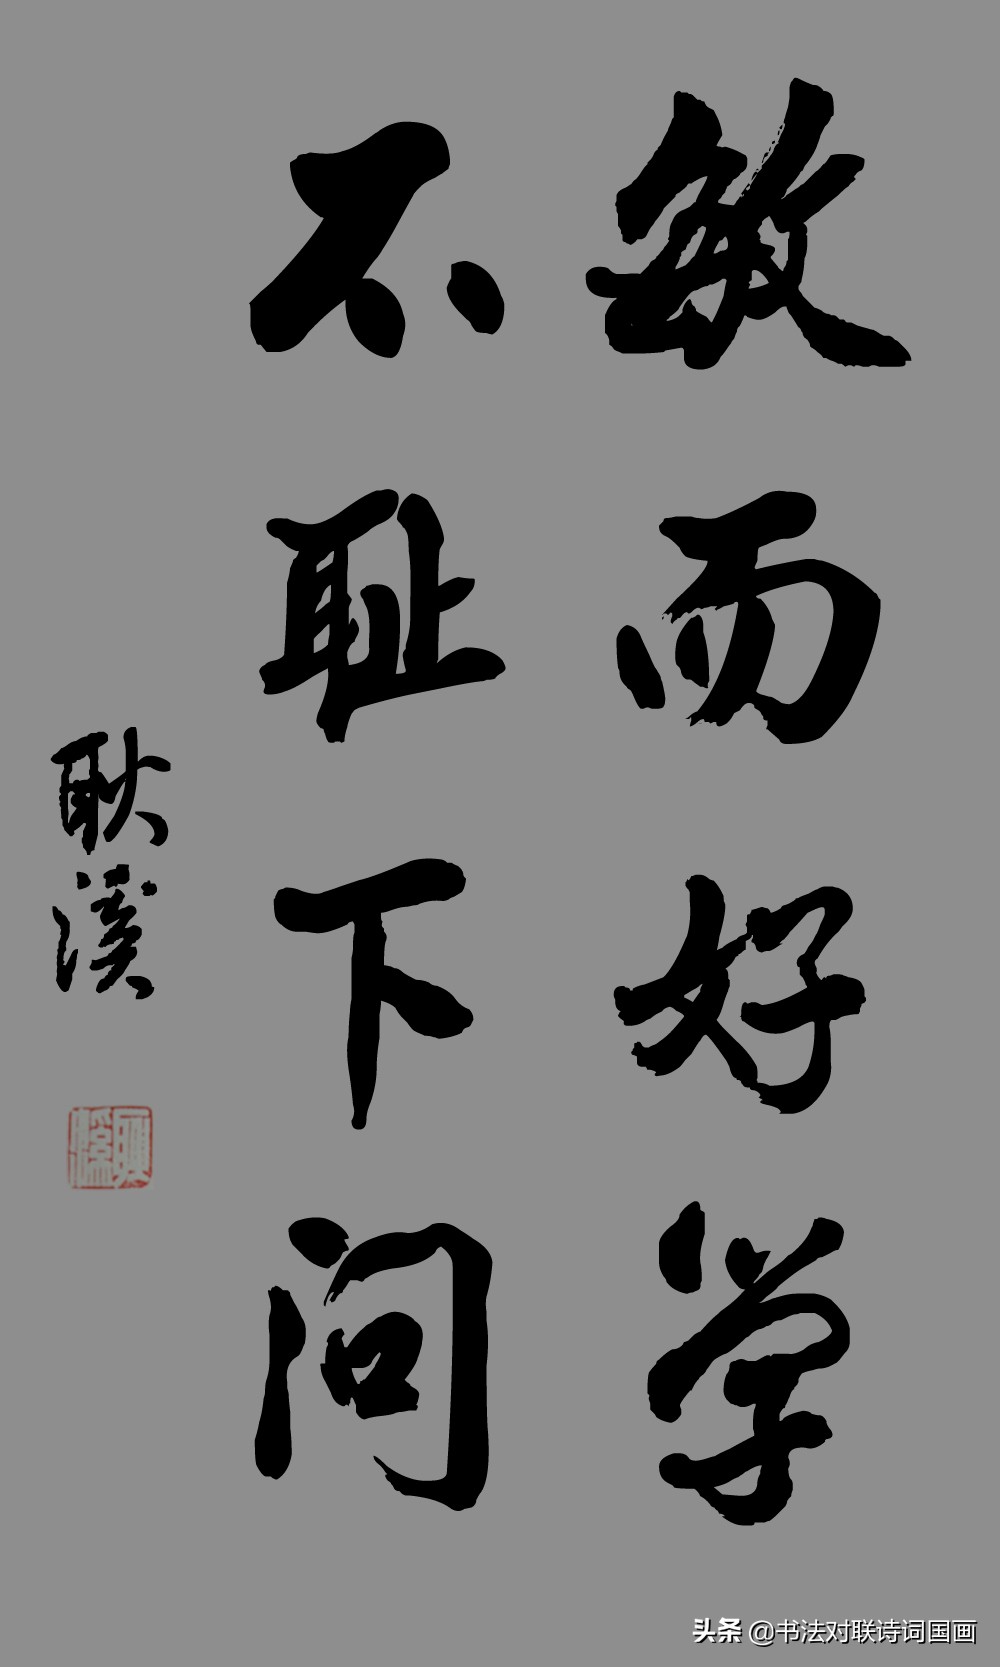 敏而好学
不耻下问
耿溪
头条 @书法对联诗词国画